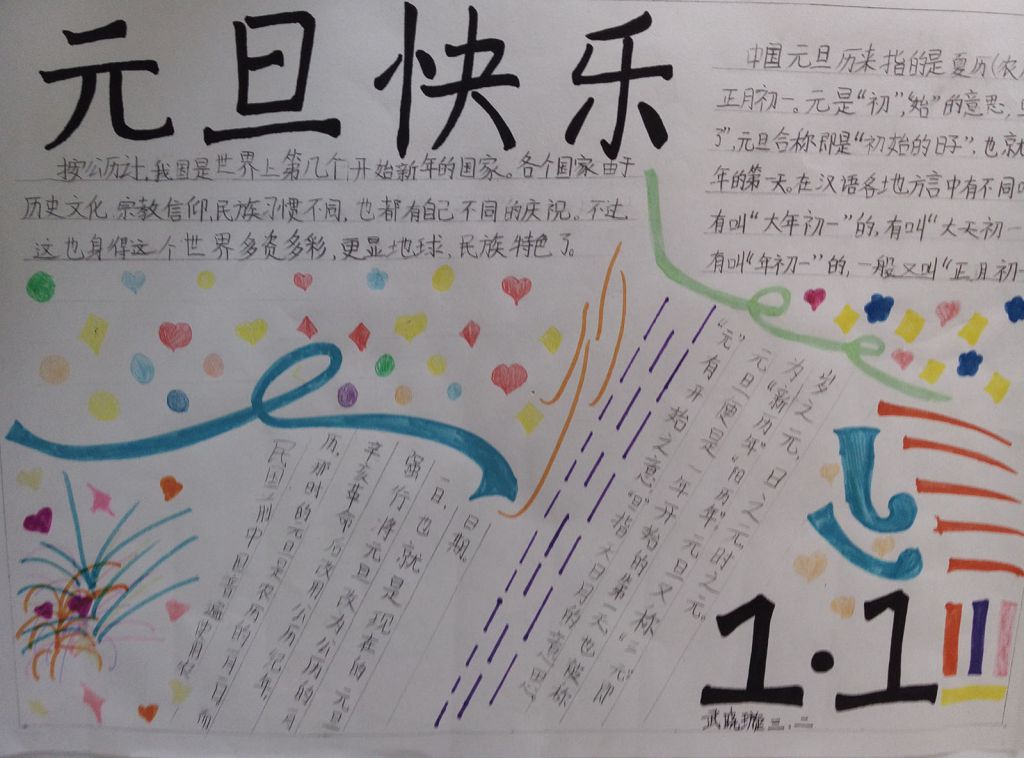 元旦快乐
按公历计,我国是世界上第几个开始新年的国家。各个国家由于
历史文化,宗教信仰,民族习惯不同,也都有自己不同的庆祝。不过,
这也身得这个世界多资多彩,更显地球,民族特色了。
中国元旦历来指的是夏历(农
正月初一。元是“初”,“始”的意思,
了”,元旦合称即是“初始的日子”,也就
年的第一天。在汉语各地方言中有不同叫
有叫“大年初一”的,有叫“大天初一
有叫“年初一”的,一般又叫“正月初一
民国之前中国普遍使用农
历,那时的元旦是农历的一月一日,而
辛亥革命后改用公历记年,
强行将元旦改为公历的一月
一日,也就是现在的元旦
日期。
“元”有开始之意,“旦”指天日月的意思。
元旦便是一年开始的第一天,也被称
为“新历年”“阳历年”。元旦又称“三元”即
岁之元,日之元,时之元。
1·1
武晓璇 三.二